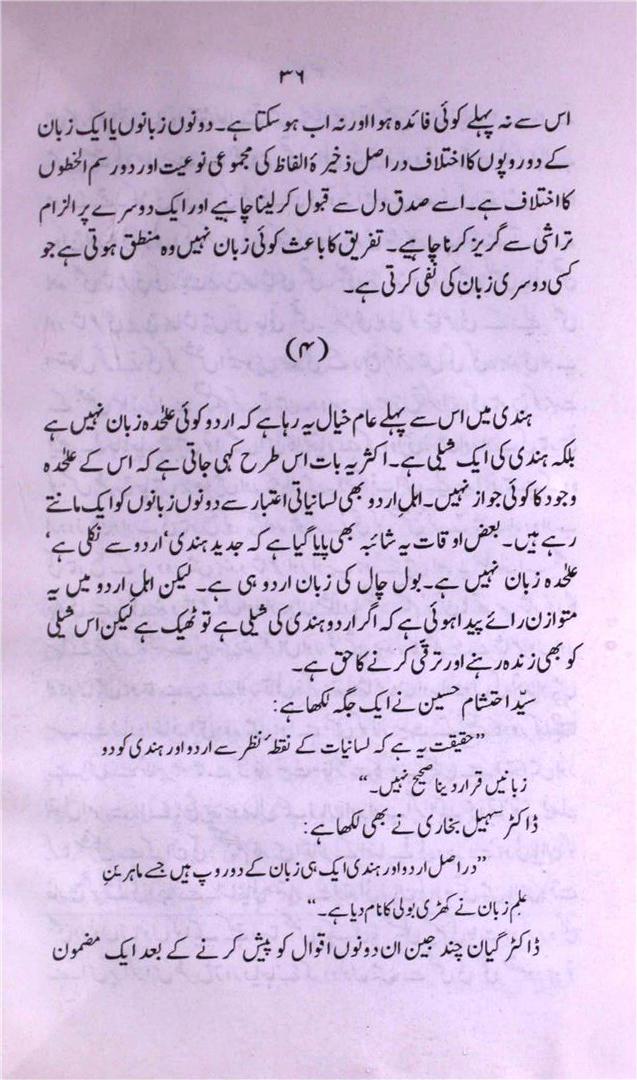 ۳۶
اس سے نہ پہلے کوئی فائدہ ہوا اور نہ اب ہو سکتا ہے۔ دونوں زبانوں یا ایک زبان
کے دو روپوں کا اختلاف دراصل ذخیرۂ الفاظ کی مجموعی نوعیت اور دو رسم الخطوں
کا اختلاف ہے۔ اسے صدق دل سے قبول کر لینا چاہیے اور ایک دوسرے پر الزام
تراشی سے گریز کرنا چاہیے۔ تفریق کا باعث کوئی زبان نہیں وہ منطق ہوتی ہے جو
کسی دوسری زبان کی نفی کرتی ہے۔
(۴)
ہندی میں اس سے پہلے عام خیال یہ رہا ہے کہ اردو کوئی علٰحدہ زبان نہیں ہے
بلکہ ہندی کی ایک شیلی ہے۔ اکثر یہ بات اس طرح کہی جاتی ہے کہ اس کے علٰحدہ
وجود کا کوئی جواز نہیں۔ اہلِ اردو بھی لسانیاتی اعتبار سے دونوں زبانوں کو ایک مانتے
رہے ہیں۔ بعض اوقات یہ شائبہ بھی پایا گیا ہے کہ جدید ہندی ’اردو سے نکلی ہے‘
علٰحدہ زبان نہیں ہے۔ بول چال کی زبان اردو ہی ہے۔ لیکن اہلِ اردو میں یہ
متوازن رائے پیدا ہوئی ہے کہ اگر اردو ہندی کی شیلی ہے تو ٹھیک ہے لیکن اس شیلی
کو بھی زندہ رہنے اور ترقی کرنے کا حق ہے۔
سیّد احتشام حسین نے ایک جگہ لکھا ہے:
”حقیقت یہ ہے کہ لسانیات کے نقطۂ نظر سے اردو اور ہندی کو دو
زبانیں قرار دینا صحیح نہیں۔“
ڈاکٹر سہیل بخاری نے بھی لکھا ہے:
”دراصل اردو اور ہندی ایک ہی زبان کے دو روپ ہیں جسے ماہرینِ
علمِ زبان نے کھڑی بولی کا نام دیا ہے۔“
ڈاکٹر گیان چند جین ان دونوں اقوال کو پیش کرنے کے بعد ایک مضمون